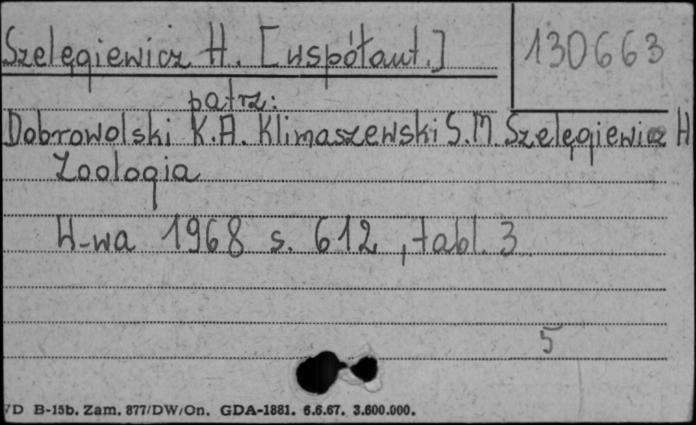 Szelęgiewicz H. [współaut.]
130663
patrz:
Dobrowolski K.A. Klimaszewski S.M. Szelęgiewicz H
Zoologia
W-wa 1968 s. 612, tabl. 3
5
D B-15b. Zam. 877/DW/On. GDA-1881. 6.6.67. 3.600.000.